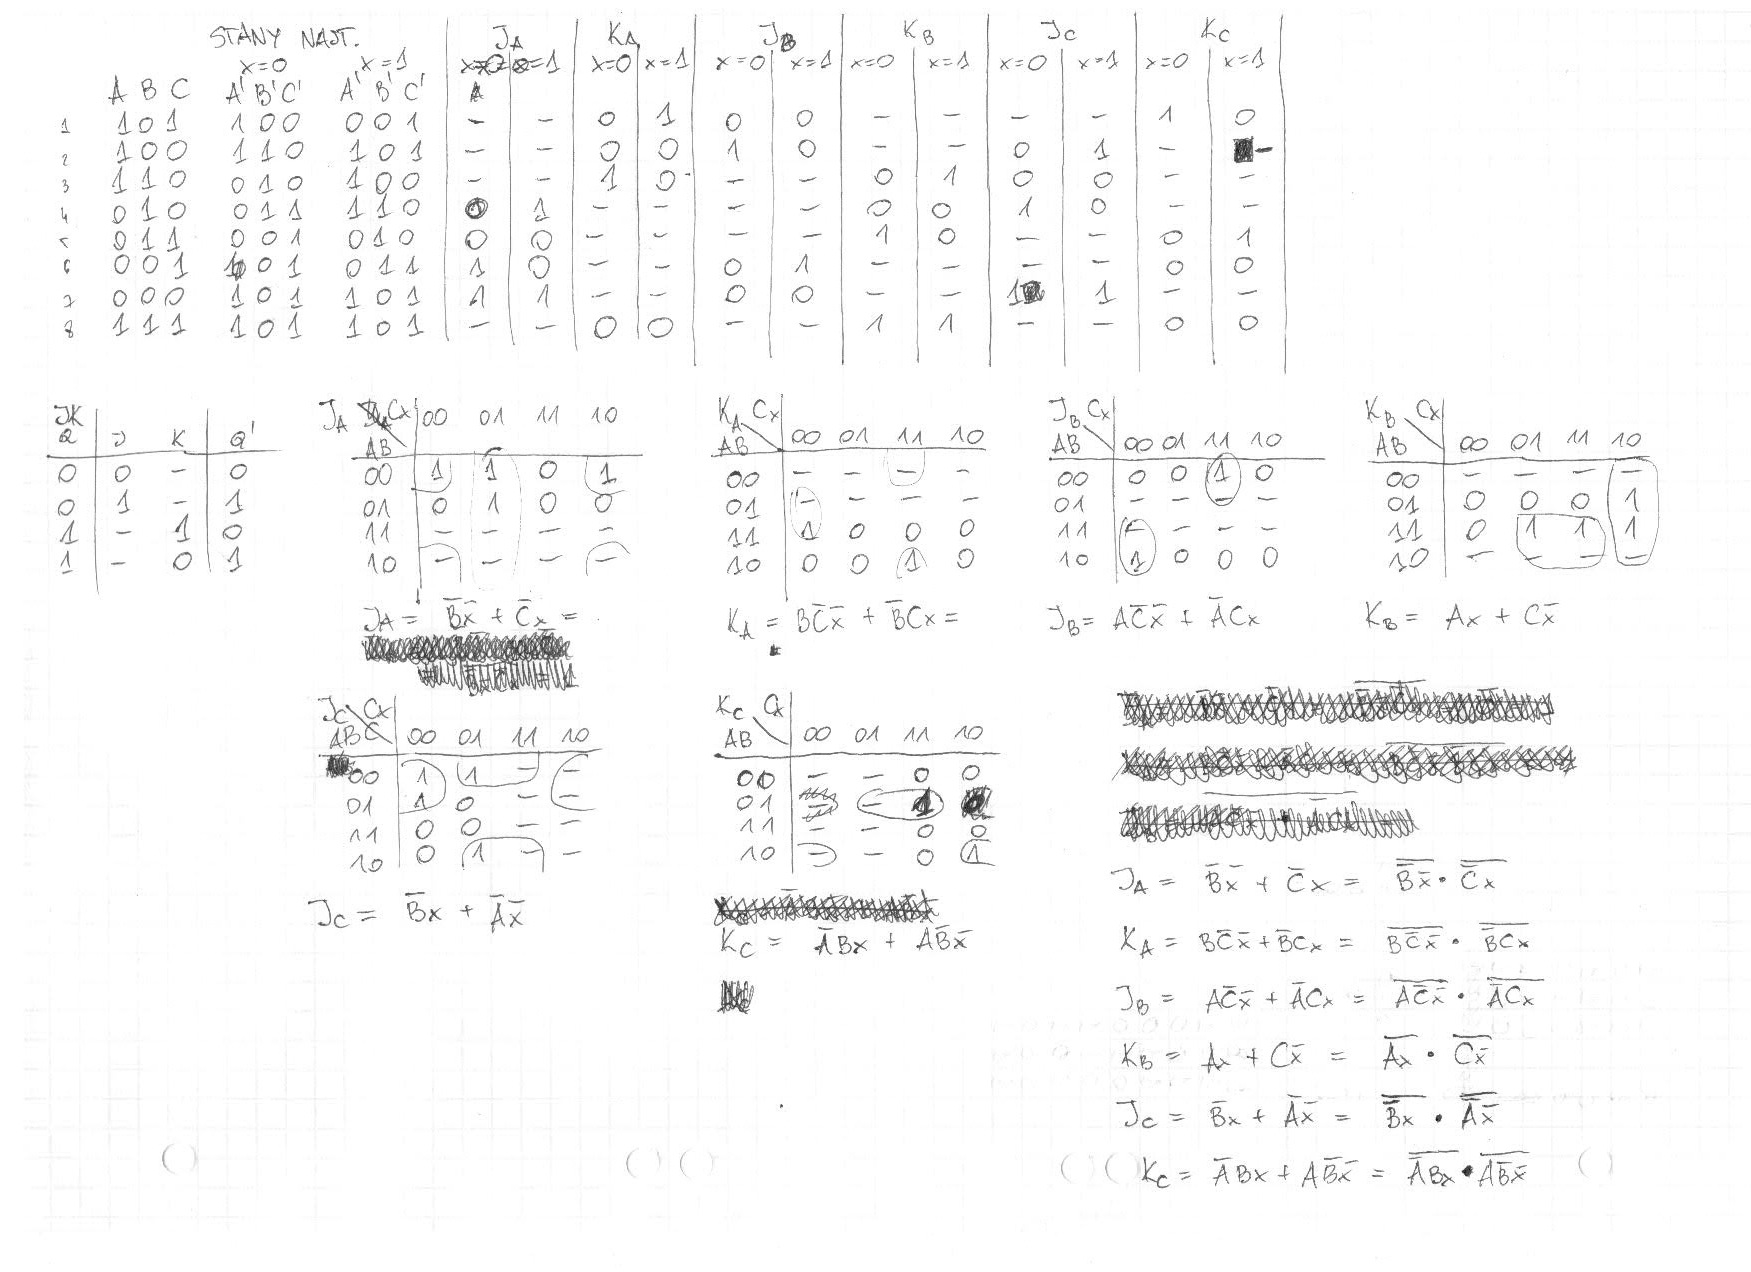 STANY NAST.
J_A K_A J_B K_B J_C K_C
x=0 x=1 x=0 x=1 x=0 x=1 x=0 x=1 x=0 x=1 x=0 x=1
A B C A' B' C' A' B' C' A
1 1 0 1 1 0 0 0 0 1 - - 0 1 0 0 - - - - 1 0
2 1 0 0 1 1 0 1 0 1 - - 0 0 1 0 - - 0 1 - -
3 1 1 0 0 1 0 1 0 0 - - 1 0 - - 0 1 0 0 - -
4 0 1 0 0 1 1 1 1 0 0 1 - - - - 0 0 1 0 - -
5 0 1 1 0 0 1 0 1 0 0 0 - - - - 1 0 - - 0 1
6 0 0 1 1 0 1 0 1 1 1 0 - - 0 1 - - - - 0 0
7 0 0 0 1 0 1 1 0 1 1 1 - - 0 0 - - 1 1 - -
8 1 1 1 1 0 1 1 0 1 - - 0 0 - - 1 1 - - 0 0
JK
Q J K Q'
0 0 - 0
0 1 - 1
1 - 1 0
1 - 0 1
J_A Cx 00 01 11 10
AB
00 1 1 0 1
01 0 1 0 0
11 - - - -
10 - - - -
J_A = B̄x̄ + C̄x =
K_A Cx
AB 00 01 11 10
00 - - - -
01 - - - -
11 1 0 0 0
10 0 0 1 0
K_A = BC̄x̄ + B̄Cx =
J_B Cx
AB 00 01 11 10
00 0 0 1 0
01 - - - -
11 - - - -
10 1 0 0 0
J_B = AC̄x̄ + ĀCx
K_B Cx
AB 00 01 11 10
00 - - - -
01 0 0 0 1
11 0 1 1 1
10 - - - -
K_B = Ax + Cx̄
J_C Cx
AB C 00 01 11 10
00 1 1 - -
01 1 0 - -
11 0 0 - -
10 0 1 - -
J_C = B̄x + Āx̄
K_C Cx
AB 00 01 11 10
00 - - 0 0
01 - - 1 0
11 - - 0 0
10 - - 0 1
K_C = ĀBx + AB̄x̄
J_A = B̄x̄ + C̄x = \overline{B̄x̄} · \overline{C̄x}
K_A = BC̄x̄ + B̄Cx = \overline{BC̄x̄} · \overline{B̄Cx}
J_B = AC̄x̄ + ĀCx = \overline{AC̄x̄} · \overline{ĀCx}
K_B = Ax + Cx̄ = \overline{Ax} · \overline{Cx̄}
J_C = B̄x + Āx̄ = \overline{B̄x} · \overline{Āx̄}
K_C = ĀBx + AB̄x̄ = \overline{ĀBx} · \overline{AB̄x̄}